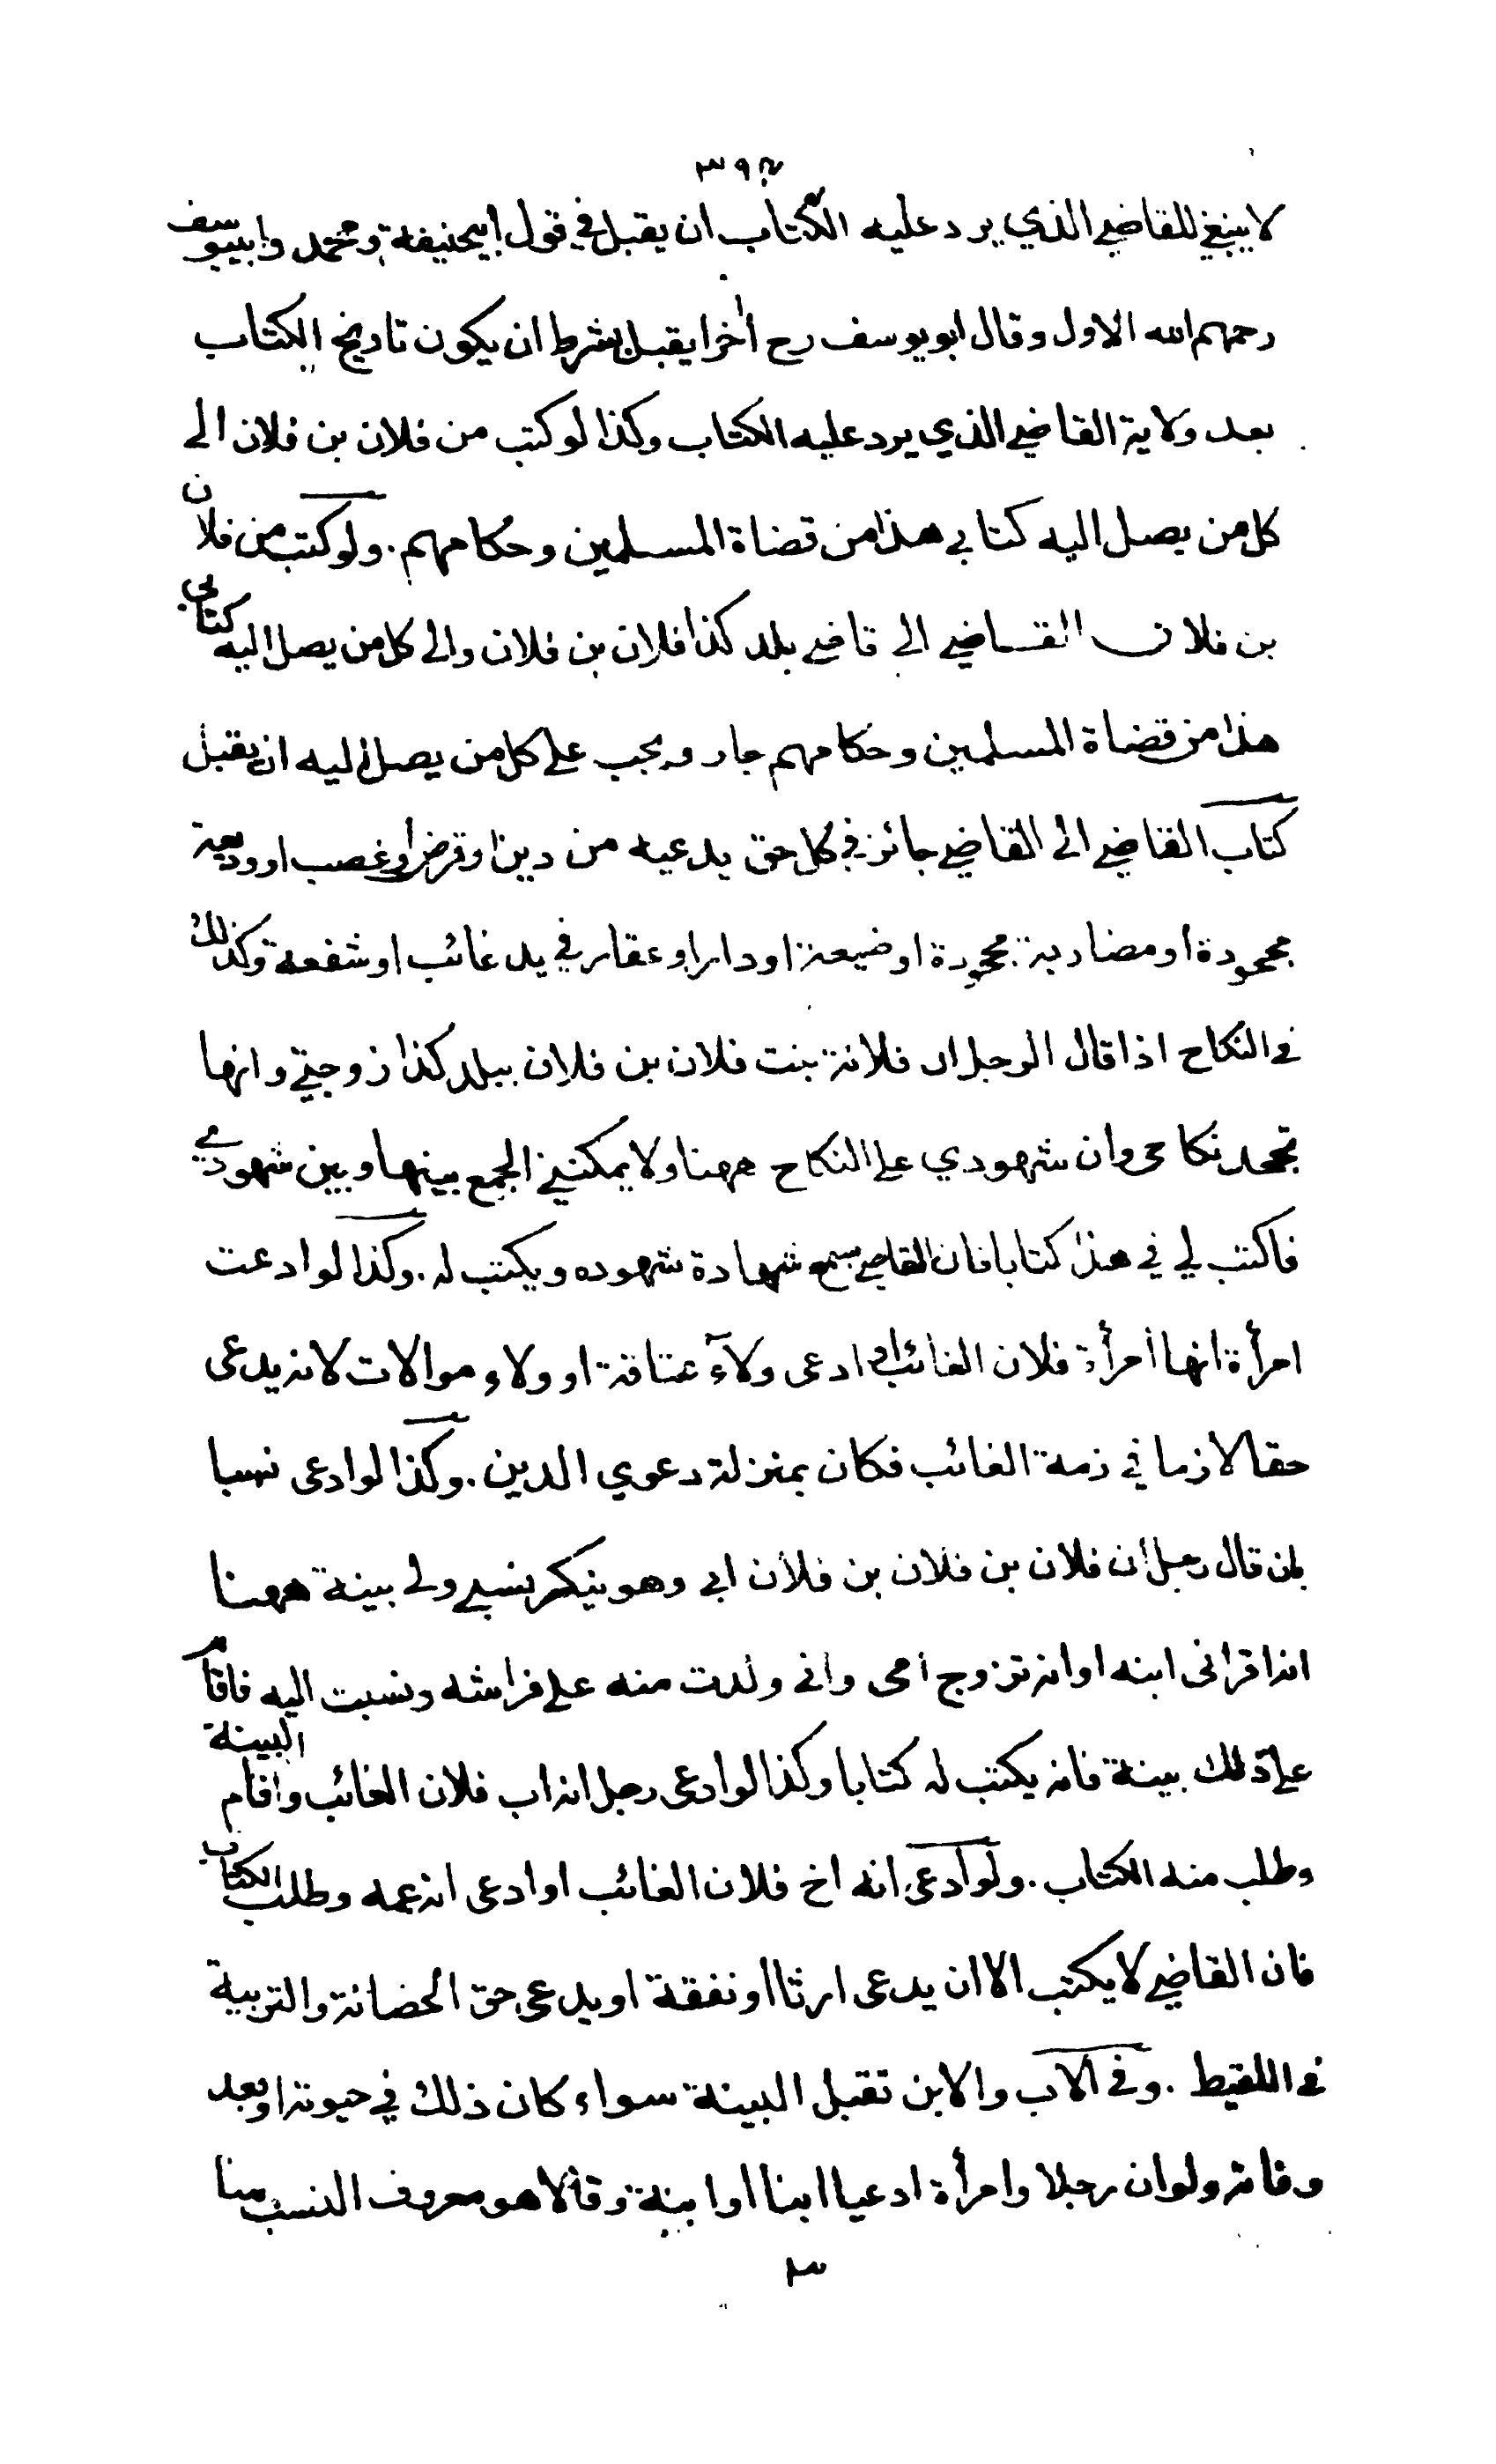 ٣٩٢
لا ينبغي للقاضي الذي يرد عليه الكتاب ان يقبل في قول ابيحنيفة ومحمد وابييوسف
رحمهم الله الاول وقال ابو يوسف رح أخرا يقبل بشرط ان يكون تاريخ الكتاب
بعد ولاية القاضي الذي يرد عليه الكتاب وكذا لو كتب من فلان بن فلان الى
كل من يصل اليه كتابي هذا من قضاة المسلمين وحكامهم . ولو كتب من فلان
بن فلان القاضي الى قاضي بلد كذا فلان بن فلان والى كل من يصل اليه كتابي
هذا من قضاة المسلمين وحكامهم جاز ويجب على كل من يصل اليه ان يقبل
كتاب القاضي الى القاضي جائز في كل حق يدعيه من دين او قرض او غصب او وديعة
مجحودة او مضاربة مجحودة او ضيعة او دار او عقار في يد غائب او شفعة وكذلك
في النكاح اذا قال الرجل ان فلانة بنت فلان بن فلان ببلد كذا زوجتي وانها
تجحد نكاحى وان شهودي على النكاح ههنا ولا يمكنني الجمع بينها وبين شهودي
فاكتب لي في هذا كتابا فان القاضي يسمع شهادة شهوده ويكتب له . وكذا لو ادعت
امرأة انها امرأة فلان الغائب او ادعى ولاء عتاقة او ولاء موالات لانه يدعى
حقا لازما في ذمة الغائب فكان بمنزلة دعوي الدين . وكذا لو ادعى نسبا
بان قال رجل ان فلان بن فلان بن فلان ابي وهو ينكر نسبي ولى بينة ههنا
انه اقر انى ابنه او انه تزوج امى وانى ولدت منه على فراشه ونسبت اليه فاقام
على ذلك بينة فانه يكتب له كتابا وكذا لو ادعى رجل انه اب فلان الغائب واقام البينة
وطلب منه الكتاب . ولو ادعى انه اخ فلان الغائب او ادعى انه عمه وطلب الكتاب
فان القاضي لا يكتب الا ان يدعى ارثا او نفقة او يدعى حق الحضانة والتربية
في اللقيط . وفي الاب والابن تقبل البينة سواء كان ذلك في حيوته او بعد
وفاته ولو ان رجلا وامرأة ادعيا ابنا او ابنة وقالا هو معروف النسب منا